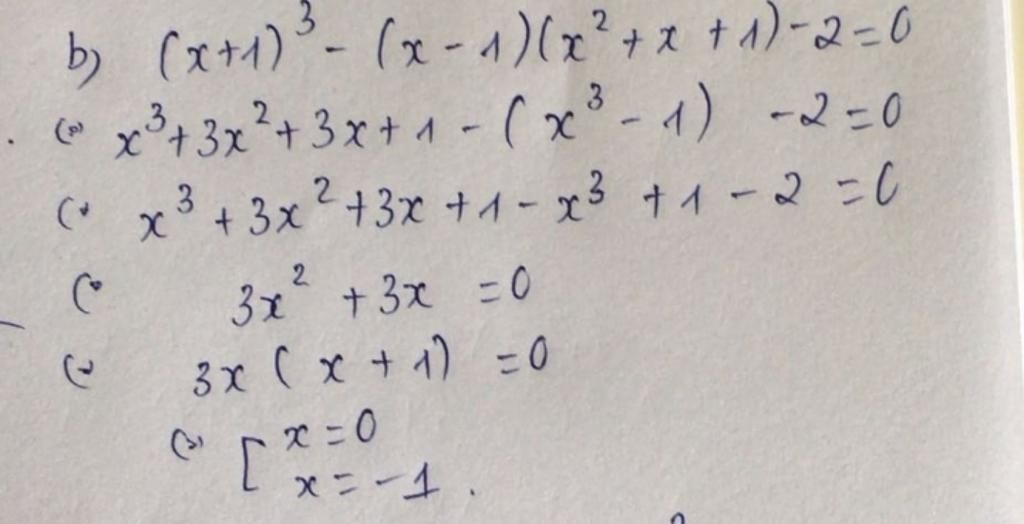 b) (x+1)³ - (x - 1)(x² + x + 1) - 2 = 0
⇔ x³ + 3x² + 3x + 1 - (x³ - 1) - 2 = 0
⇔ x³ + 3x² + 3x + 1 - x³ + 1 - 2 = 0
⇔ 3x² + 3x = 0
⇔ 3x (x + 1) = 0
⇔ [ x = 0
x = -1 .